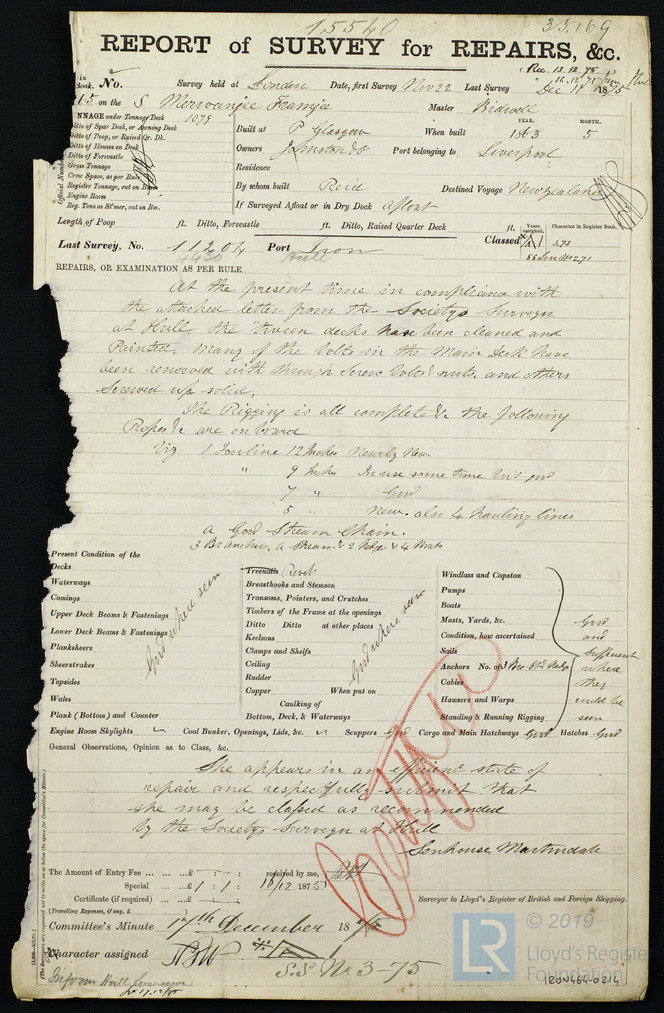 15540
33,169
REPORT of SURVEY for REPAIRS, &c.
Rec. 13.12.75
in
Book. No. Survey held at London Date, first Survey Nov 22 Last Survey Dec 11 1875
on the S Merwanjee Framjee Master Bidwell
TONNAGE under Tonnage Deck 1078
Ditto of Spar Deck, or Awning Deck
Ditto of Poop, or Raised Qr. Dk.
Ditto of Houses on Deck
Ditto of Forecastle
Gross Tonnage
Crew Space, as per Rule
Register Tonnage, cut on Beam
Engine Room
Reg. Tons as St'mer, cut on Bm.
Official Number
YEAR. MONTH.
Built at P Glasgow When built 1863 5
Owners Johnston & Co Port belonging to Liverpool
Residence
By whom built Reid Destined Voyage New Zealand
If Surveyed Afloat or in Dry Dock Afloat
Length of Poop ft. Ditto, Forecastle ft. Ditto, Raised Quarter Deck ft.
Years assigned. Character in Register Book.
Last Survey, No. 11204 Port Hull Classed A1 3,73
Iron
SS Lon No 2,71
REPAIRS, OR EXAMINATION AS PER RULE
At the present time in compliance with
the attached letter from the Societys Surveyor
at Hull the 'tween decks have been cleaned and
Painted. Many of the bolts in the Main Deck have
been renewed with through Screw bolts & nuts, and others
Screwed up solid.
The Rigging is all complete & the following
Ropes &c are on board
Viz 1 Towline 12 Inches Nearly New
" 9 Inches In use some time but good
7 " Good
5 " New. also 4 hauling lines
a Good Stream Chain.
3 Br anchors, a Stream & 2 Kedges & 4 Boats
Present Condition of the
Decks
Waterways
Comings
Upper Deck Beams & Fastenings
Lower Deck Beams & Fastenings
Planksheers
Sheerstrakes
Topsides
Wales
Plank (Bottom) and Counter
Good where seen
Treenails Rivets
Breasthooks and Stemson
Transoms, Pointers, and Crutches
Timbers of the Frame at the openings
Ditto Ditto at other places
Keelsons
Clamps and Shelfs
Ceiling
Rudder
Copper When put on
Caulking of
Bottom, Deck, & Waterways
Good where seen
Windlass and Capstan
Pumps
Boats
Masts, Yards, &c.
Condition, how ascertained
Sails
Anchors No. of 3 Bws St 2 Kedgs
Cables
Hawsers and Warps
Standing & Running Rigging
Good
and
sufficient
where
they
could be
seen
Engine Room Skylights Coal Bunker, Openings, Lids, &c. Scuppers Good Cargo and Main Hatchways Good Hatches Good
General Observations, Opinion as to Class, &c.
She appears in an efficient state of
repair and respectfully submit that
she may be classed as recommended
by the Societys Surveyor at Hull
Senhouse Martindale
The Amount of Entry Fee ... ... ...£ : : received by me,
Special ... ...£ 1 : 1 : 10/12 1875
Certificate (if required) ... ...£ : :
(Travelling Expenses, if any, £
Surveyor to Lloyd's Register of British and Foreign Shipping.
Committee's Minute 17th December 1875
Character assigned
S.S. No 3-75
Inform Hull Surveyor
17.12/75
LR
© 2019
Lloyd's Register
Foundation
IRON464-0214